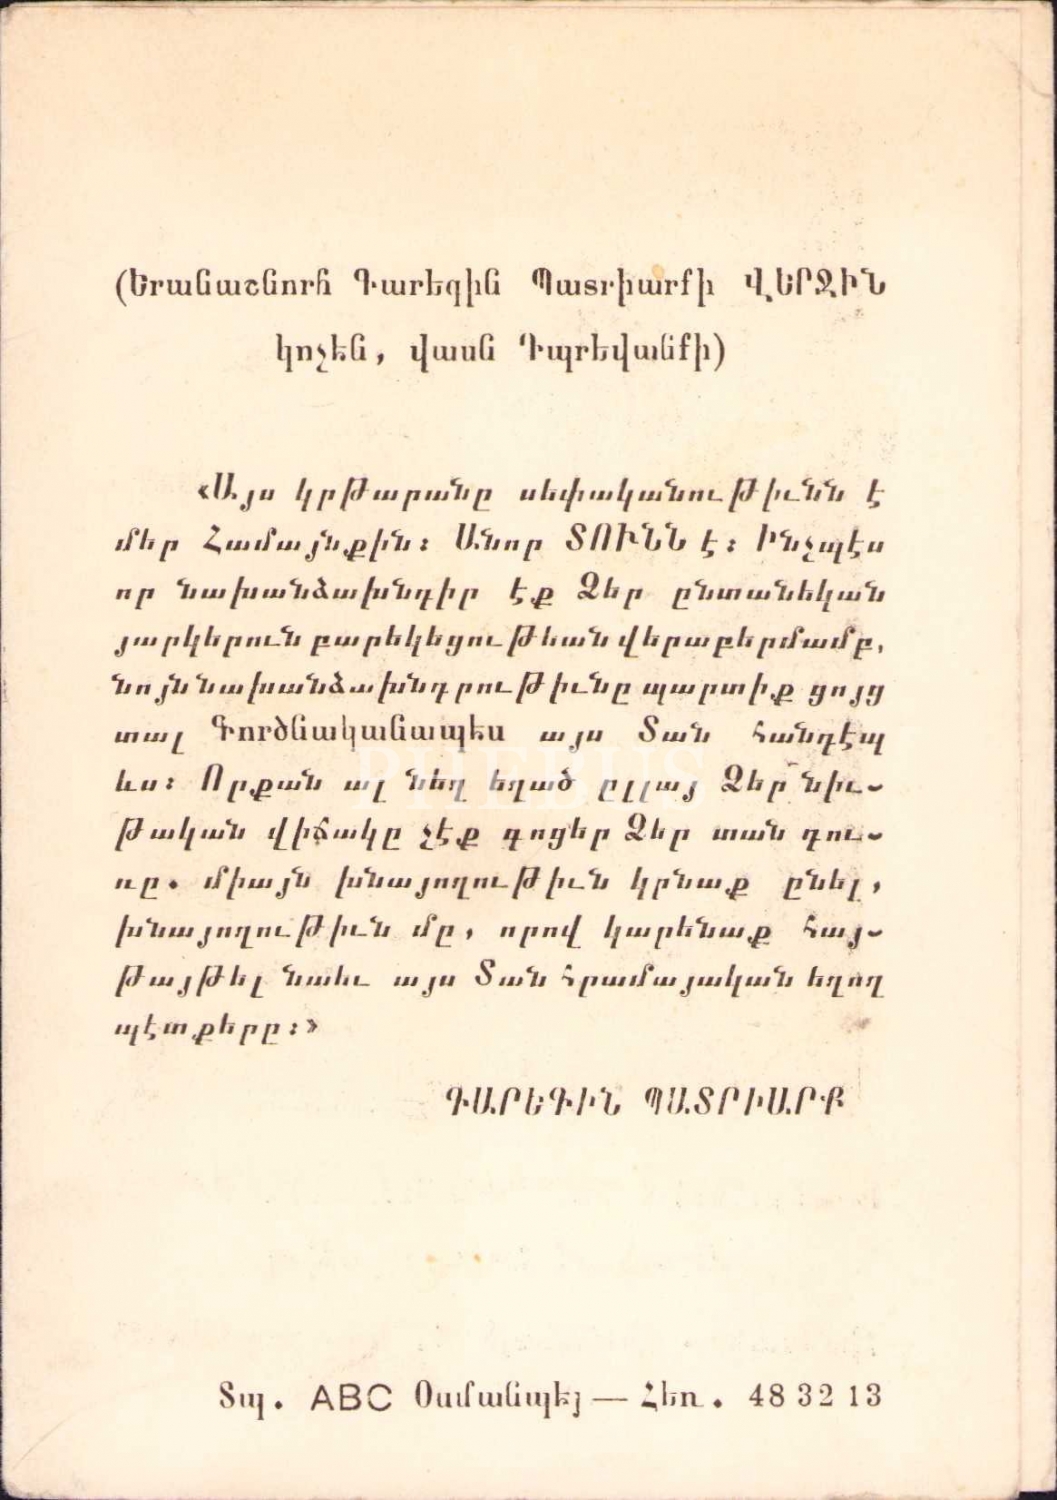 (Երանաշնորհ Գարեգին Պատրիարքի ՎԵՐՋԻՆ
կոչեն, վասն Դպրեվանքի)
«Այս կրթարանը սեփականութիւնն է
մեր Համայնքին։ Անոր ՏՈՒՆՆ է։ Ինչպէս
որ նախանձախնդիր էք Ձեր ընտանեկան
յարկերուն բարեկեցութեան վերաբերմամբ,
նոյն նախանձախնդրութիւնը պարտիք ցոյց
տալ Գործնականապես այս Տան հանդէպ
ևս։ Որքան ալ նեղ եղած ըլլայ Ձեր նիւ-
թական վիճակը չէք գոցեր Ձեր տան դու-
ռը. միայն խնայողութիւն կրնաք ընել,
խնայողութիւն մը, որով կարենաք հայ-
թայթել նաեւ այս Տան հրամայական եղող
պէտքերը։»
ԳԱՐԵԳԻՆ ՊԱՏՐԻԱՐՔ
Տպ. ABC Օսմանպէյ — Հեռ. 48 32 13
PHEBUS